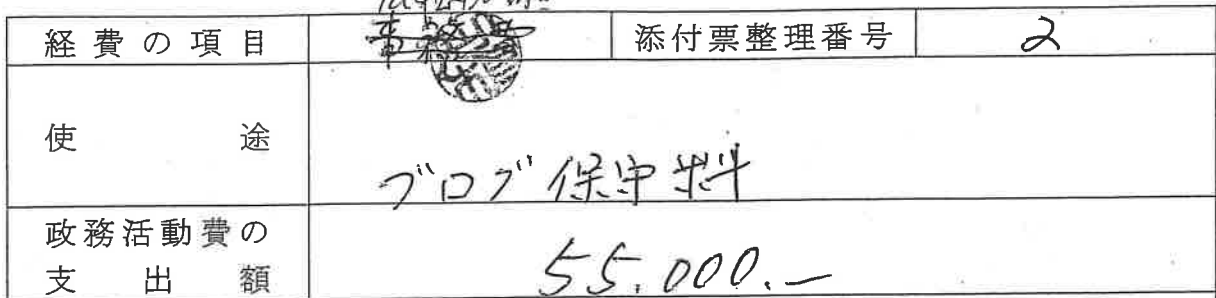 経費の項目 事務費 添付票整理番号 2
使途 ブログ保守料
政務活動費の
支出額 55.000.-